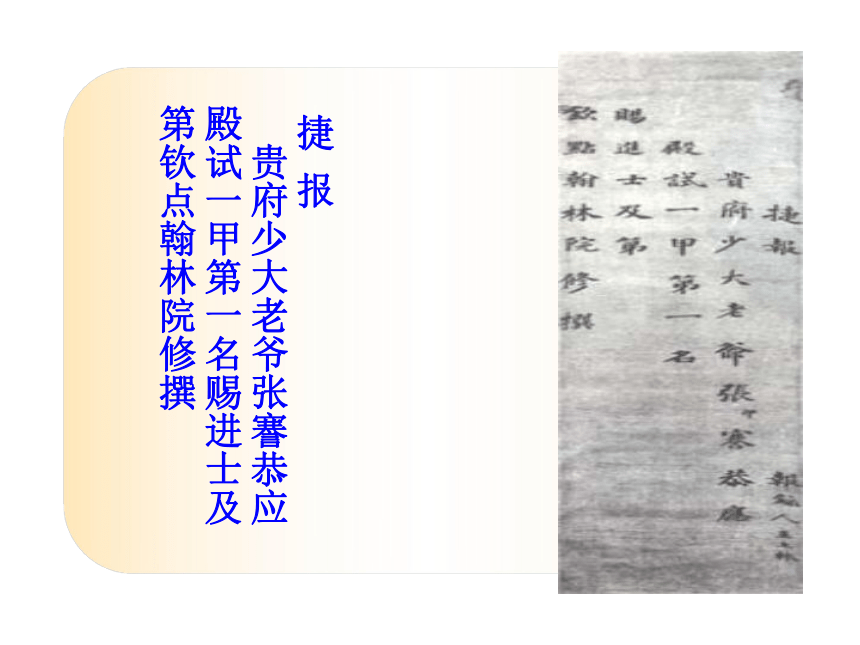 捷报
贵府少大老爷张謇恭应
殿试一甲第一名赐进士及
第钦点翰林院修撰
捷報
貴府少大老爺張印謇恭應
殿試一甲第一名
賜進士及第
欽點翰林院修撰
報人